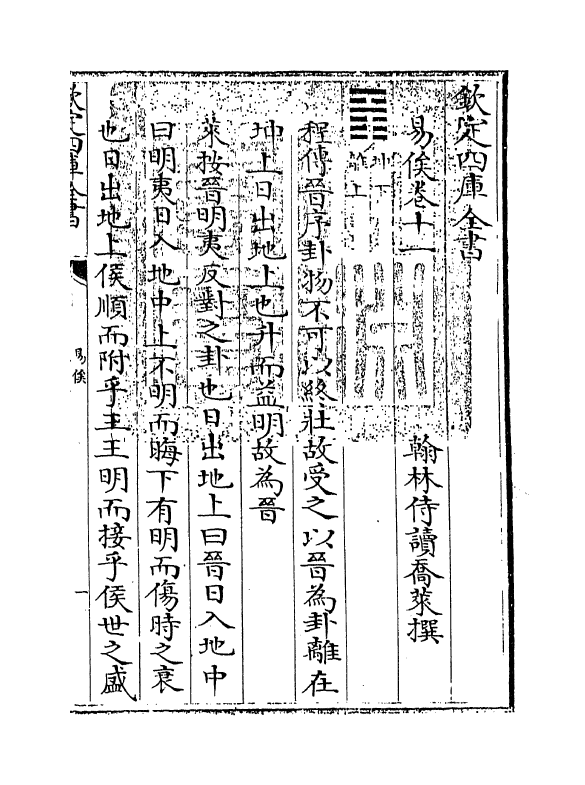 欽定四庫全書
易俟卷十一
翰林侍讀喬萊撰
坤下
離上
程傳晉序卦物不可以終壯故受之以晉為卦離在
坤上日出地上也升而益明故為晉
萊按晉明夷反對之卦也日出地上曰晉日入地中
曰明夷日入地中上不明而晦下有明而傷時之衰
也日出地上侯順而附乎王王明而接乎侯世之盛
欽定四庫全書
易俟
一